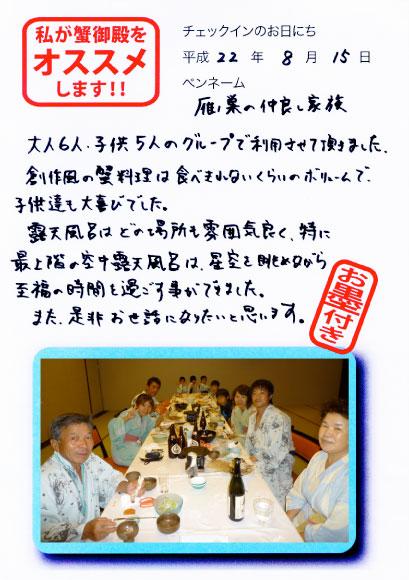 私が蟹御殿を
オススメ
します!!
チェックインのお日にち
平成 22 年 8 月 15 日
ペンネーム
雁ノ巣の仲良し家族
大人6人、子供5人のグループで利用させて頂きました。
創作風の蟹料理は食べきれないくらいのボリュームで、
子供達も大喜びでした。
露天風呂はどの場所も雰囲気良く、特に
最上階の空中露天風呂は、星空を眺めながら
至福の時間を過ごす事ができました。
また、是非お世話になりたいと思います。
お墨付き